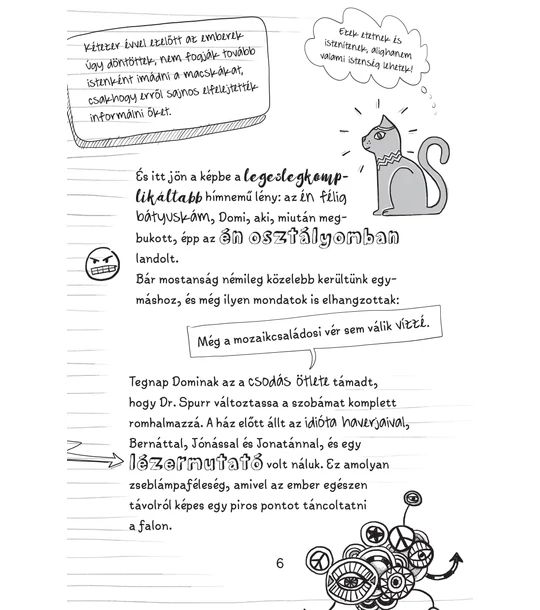 Kétezer évvel ezelőtt az emberek
úgy döntöttek, nem fogják tovább
istenként imádni a macskákat,
csakhogy erről sajnos elfelejtették
informálni őket.
Ezek etetnek és
istenítenek, alighanem
valami istenség lehetek!
És itt jön a képbe a legeslegkomp-
likáltabb hímnemű lény: az én félig
bátyuskám, Domi, aki, miután meg-
bukott, épp az én osztályomban
landolt.
Bár mostanság némileg közelebb kerültünk egy-
máshoz, és még ilyen mondatok is elhangzottak:
Még a mozaikcsaládosi vér sem válik vízzé.
Tegnap Dominak az a csodás ötlete támadt,
hogy Dr. Spurr változtassa a szobámat komplett
romhalmazzá. A ház előtt állt az idióta haverjaival,
Bernáttal, Jónással és Jonatánnal, és egy
lézermutató volt náluk. Ez amolyan
zseblámpaféleség, amivel az ember egészen
távolról képes egy piros pontot táncoltatni
a falon.
6